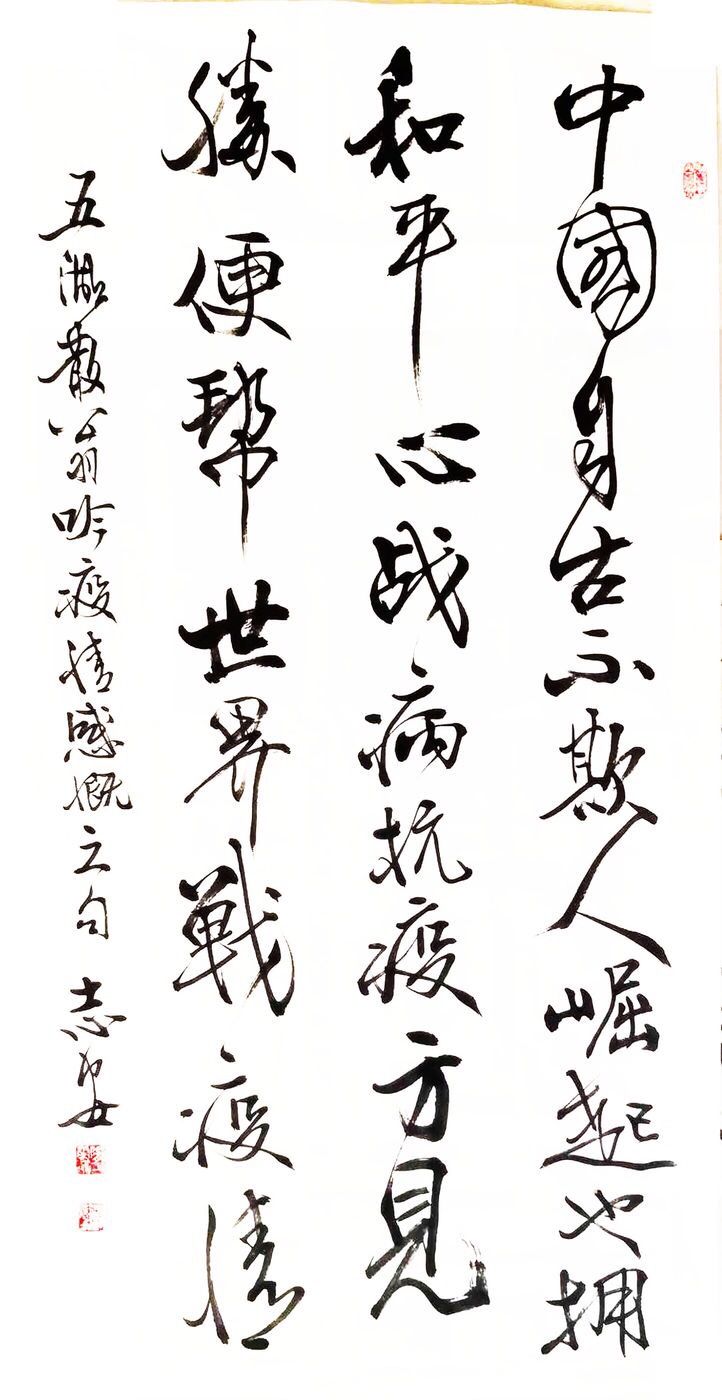 中國自古不欺人崛起也拥
和平心战病抗疫方見
勝便帮世界戰疫情
五湖散翁吟疫情感慨之句 志安